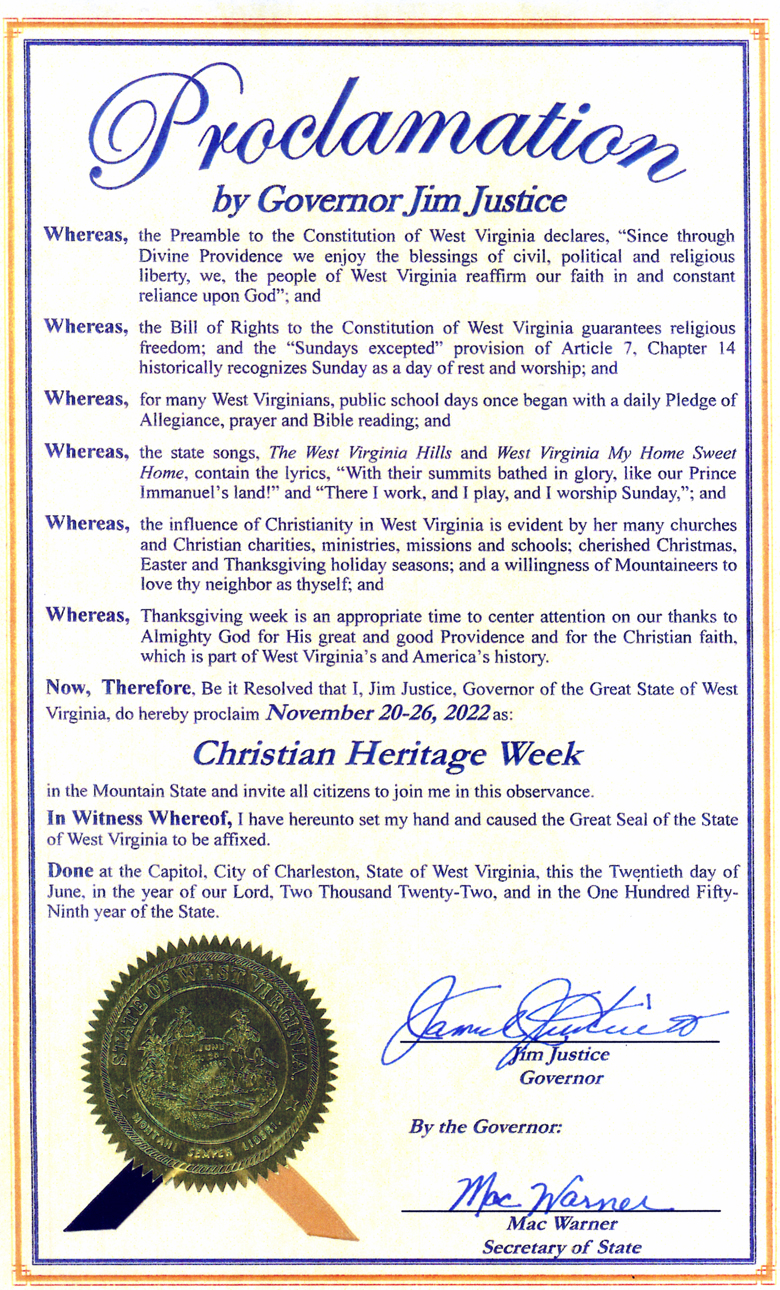 Proclamation
by Governor Jim Justice
Whereas, the Preamble to the Constitution of West Virginia declares, “Since through
Divine Providence we enjoy the blessings of civil, political and religious
liberty, we, the people of West Virginia reaffirm our faith in and constant
reliance upon God”; and
Whereas, the Bill of Rights to the Constitution of West Virginia guarantees religious
freedom; and the “Sundays excepted” provision of Article 7, Chapter 14
historically recognizes Sunday as a day of rest and worship; and
Whereas, for many West Virginians, public school days once began with a daily Pledge of
Allegiance, prayer and Bible reading; and
Whereas, the state songs, The West Virginia Hills and West Virginia My Home Sweet
Home, contain the lyrics, “With their summits bathed in glory, like our Prince
Immanuel’s land!” and “There I work, and I play, and I worship Sunday,”; and
Whereas, the influence of Christianity in West Virginia is evident by her many churches
and Christian charities, ministries, missions and schools; cherished Christmas,
Easter and Thanksgiving holiday seasons; and a willingness of Mountaineers to
love thy neighbor as thyself; and
Whereas, Thanksgiving week is an appropriate time to center attention on our thanks to
Almighty God for His great and good Providence and for the Christian faith,
which is part of West Virginia’s and America’s history.
Now, Therefore, Be it Resolved that I, Jim Justice, Governor of the Great State of West
Virginia, do hereby proclaim November 20-26, 2022 as:
Christian Heritage Week
in the Mountain State and invite all citizens to join me in this observance.
In Witness Whereof, I have hereunto set my hand and caused the Great Seal of the State
of West Virginia to be affixed.
Done at the Capitol, City of Charleston, State of West Virginia, this the Twentieth day of
June, in the year of our Lord, Two Thousand Twenty-Two, and in the One Hundred Fifty-
Ninth year of the State.
STATE OF WEST VIRGINIA
MONTANI SEMPER LIBERI
Jim Justice
Governor
By the Governor:
Mac Warner
Mac Warner
Secretary of State